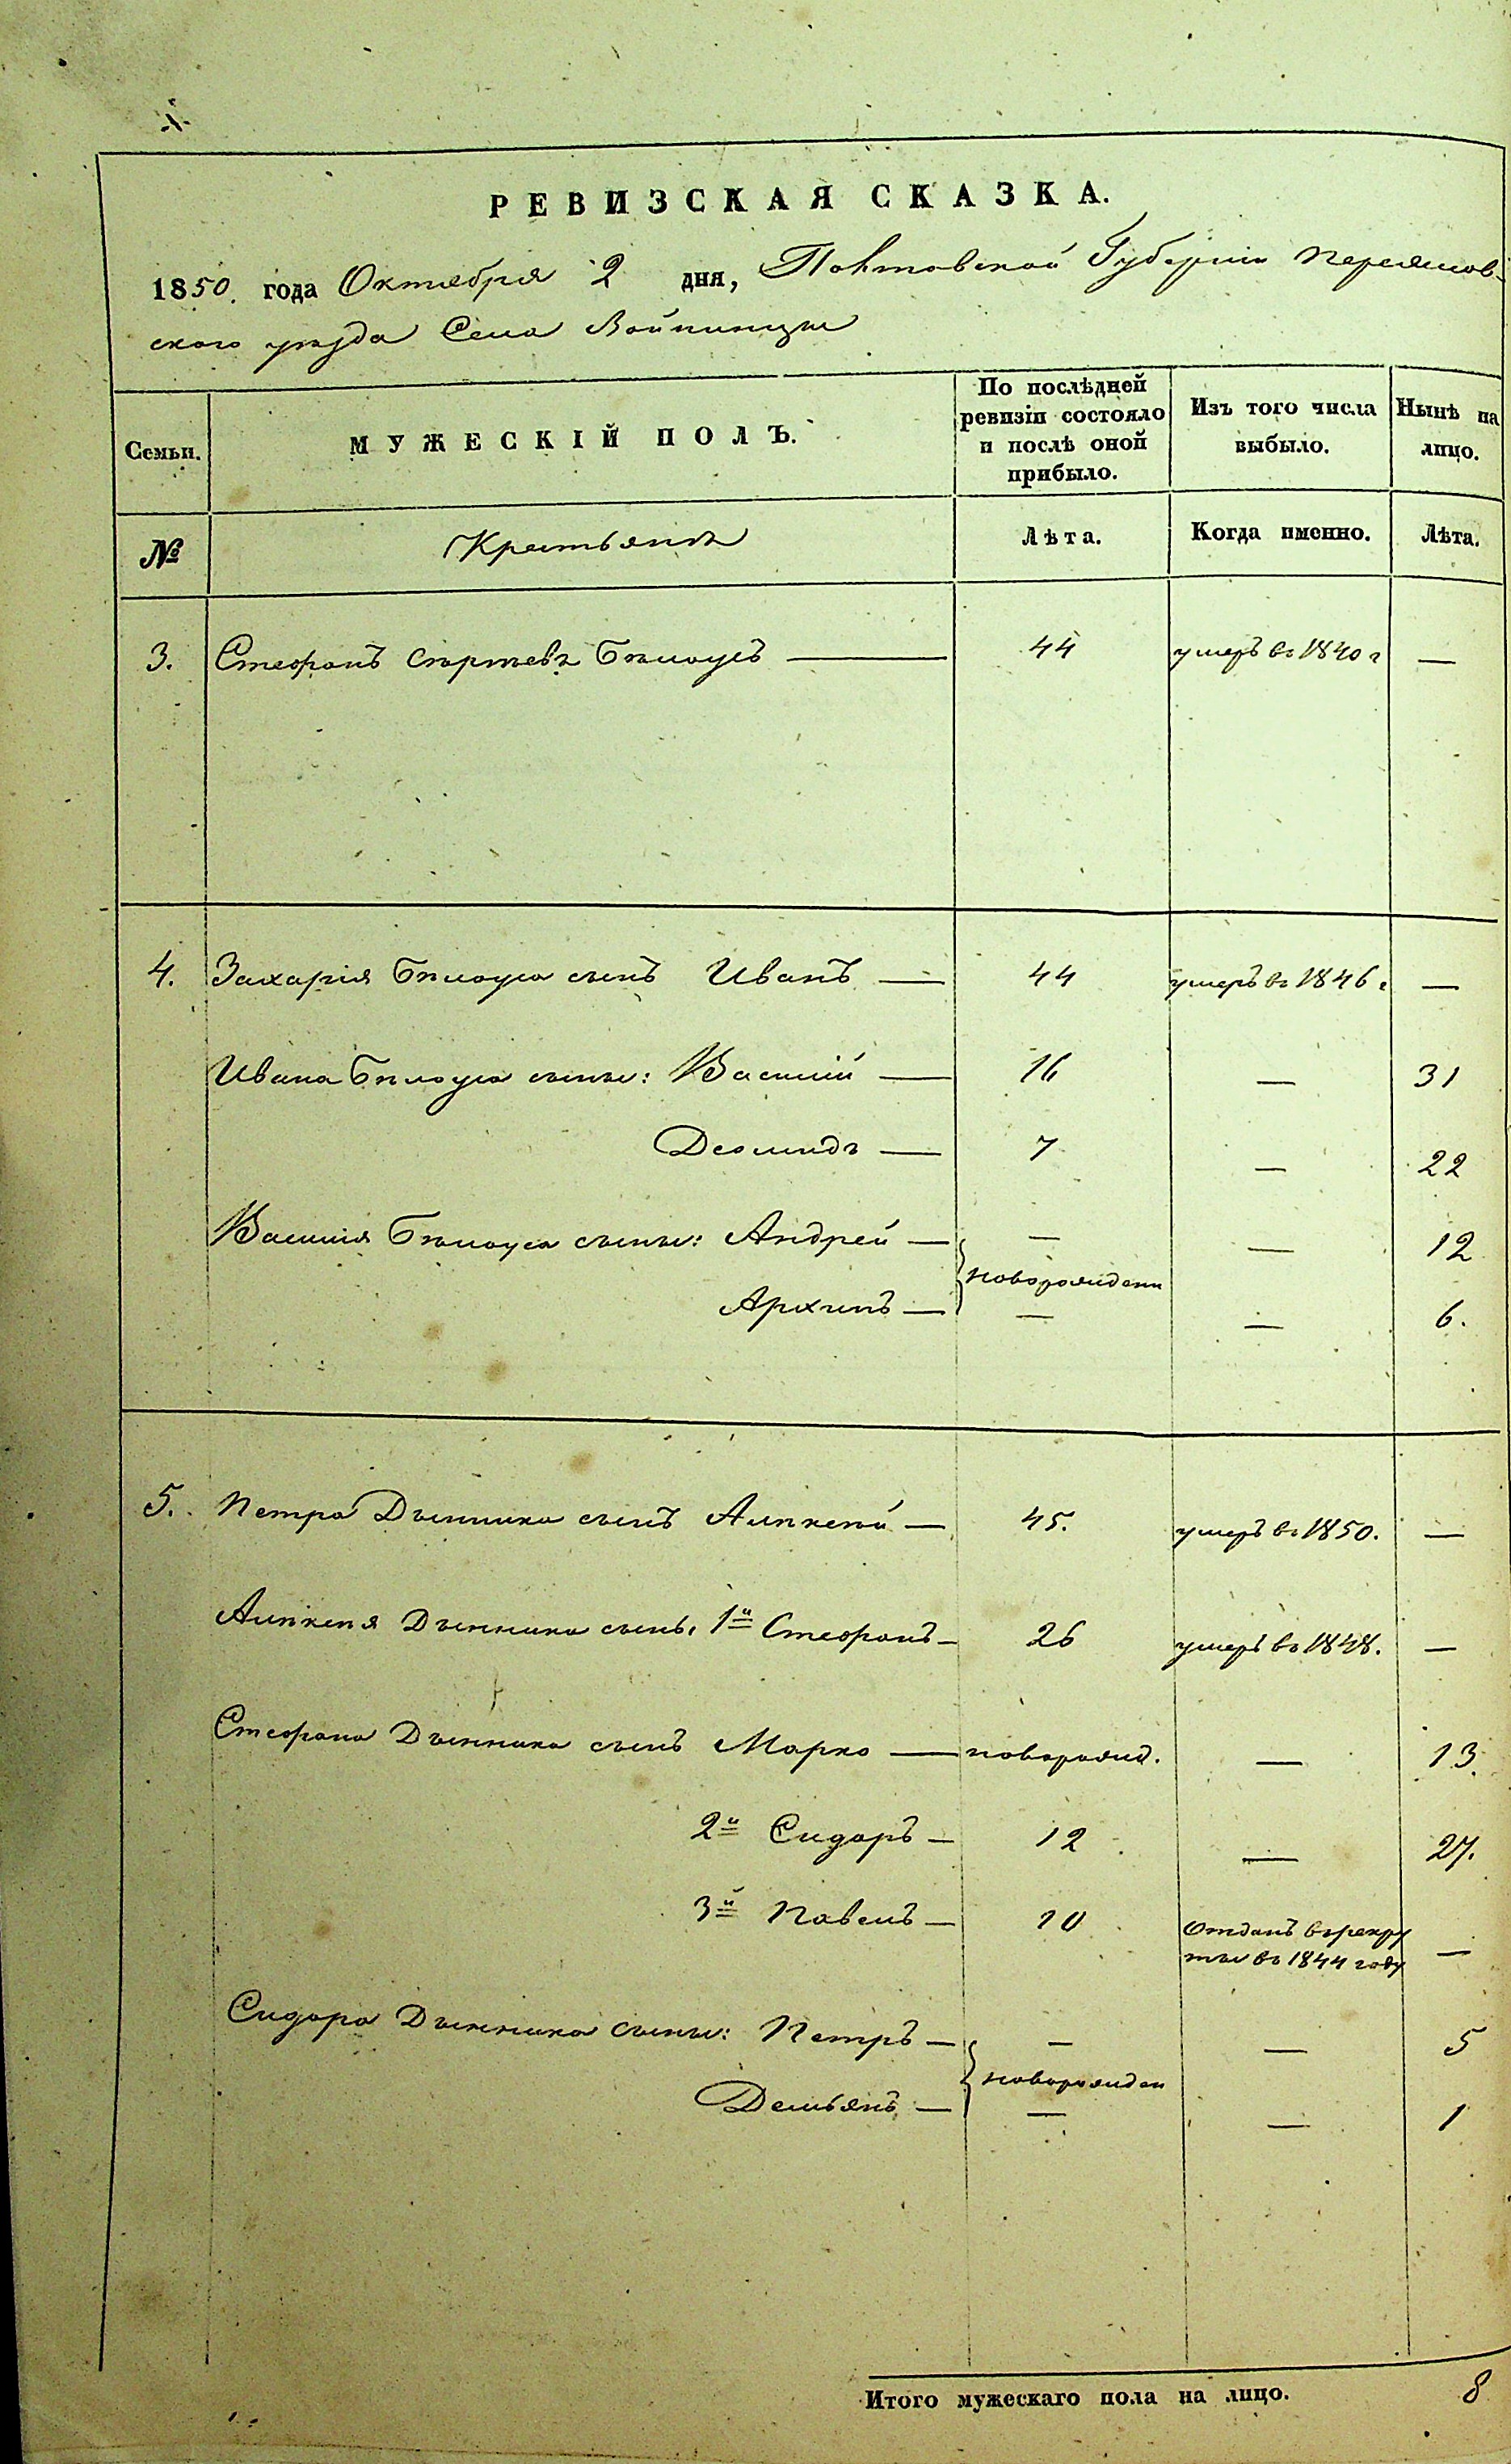 РЕВИЗСКАЯ СКАЗКА.
1850. года Октября 2 дня, Полтавской Губерніи Переяслов-
ского уѣзда Села Войтинцы
Семьи.
МУЖЕСКІЙ ПОЛЪ.
По послѣдней ревизіи состояло и послѣ оной прибыло.
Изъ того числа выбыло.
Нынѣ на лицо.
№ Крестьяне Лѣта. Когда именно. Лѣта.
3. Стефанъ Бѣлоусъ — 44 умеръ въ 1840 г —
4. Захарія Бѣлоуса сынъ Иванъ — 44 умеръ въ 1846 г —
Ивана Бѣлоуса сыны: Василій — 16 — 31
Деомидъ — 7 — 22
Василія Бѣлоуса сыны: Андрей — — — 12
новорожденн
Архипъ — — — 6.
5. Петра Дынника сынъ Алексѣй — 45. умеръ въ 1850. —
Алексѣя Дынника сынъ, 1й Стефанъ — 26 умеръ въ 1848. —
Стефана Дынника сынъ Марко — новорожд. — 13.
2й Сидоръ — 12 — 27.
3й Павелъ — 10 Отданъ въ рекру
ты въ 1844 году —
Сидора Дынника сыны: Петръ — — — 5
новорожден
Демьянъ — — — 1
Итого мужескаго пола на лицо. 8